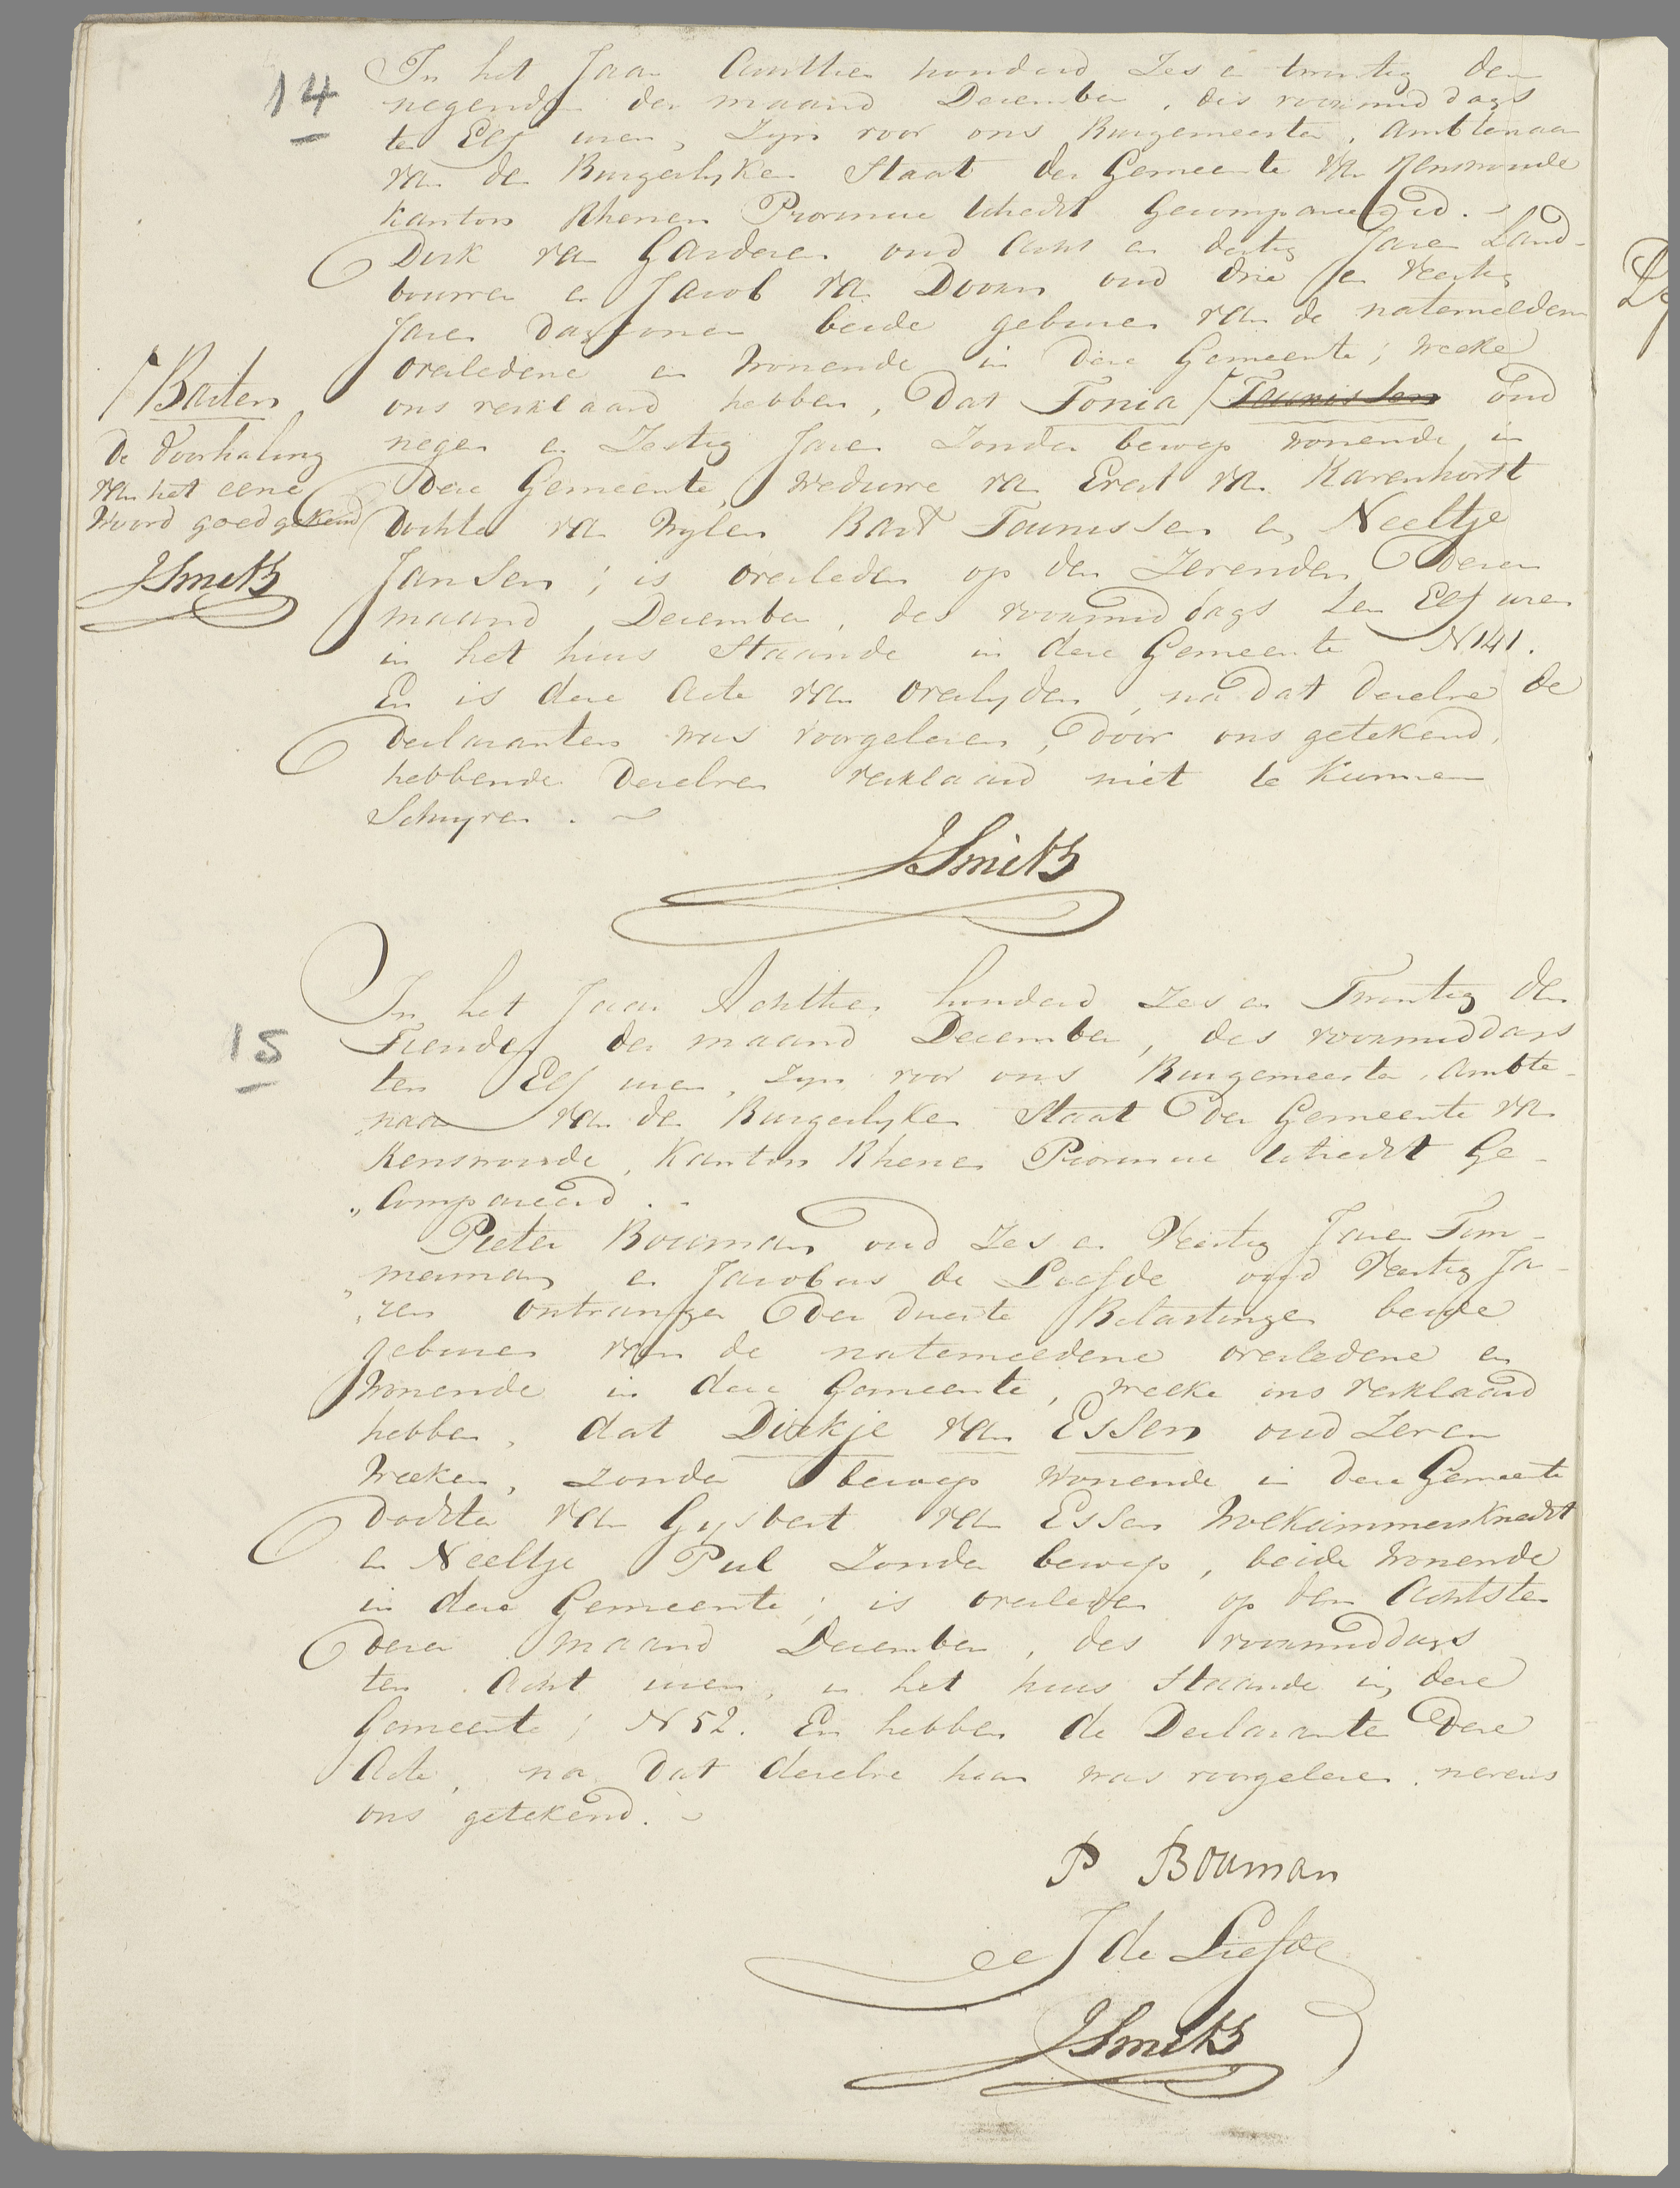 14
In het Jaar Achttien honderd Zes en twintig den
negenden der maand December, des voormiddags
ten Elf uren, Zyn voor ons Burgemeester, Ambtenaar
van den Burgerlyken Staat der Gemeente van Renswoude
Kanton Rhenen Provincie Utrecht Gecompareerd. ~
Dirk van Garderen oud Acht en dertig Jaren Land-
bouwer en Jacob van Doorn oud drie en Veertig
Jaren Dagloner beide geburen van de natemelden
overledene en Wonende in deze Gemeente; Welke
ons verklaard hebben, Dat Tonia / Teunissen oud
negen en Zestig Jaren Zonder beroep wonende in
Deze Gemeente, Weduwe van Evert van Ravenhorst
Dochter van Wylen Bart Teunissen en Neeltje
Jansen; is overleden op den Zevenden Dezer
maand December, des voormiddags ten Elf uren
in het huis Staande in deze Gemeente N 141.
En is deze Acte van Overlyden, na dat dezelve de
Declaranten was voorgelezen, door ons getekend,
hebbende Dezelven verklaard niet te Kunnen
Schryven. ~
/ Barten
De Doorhaling
van het eene
Woord goedgekeurd
JSmits
JSmits
15
In het Jaar Achttien honderd Zes en Twintig den
Tienden der maand December, des voormiddags
ten Elf uren, Zyn voor ons Burgemeester, Ambte-
naar van den Burgerlyken Staat der Gemeente van
Renswoude, Kanton Rhenen Provincie Utrecht Ge-
„ Compareerd. -
Pieter Bouman oud Zes en Veertig Jaren Tim-
„ merman en Jacobus de Liefde oud Veertig Ja-
„ ren Ontvanger der directe Belastingen beide
geburen van de natemeldene overledene en
Wonende in deze Gemeente, Welke ons Verklaard
hebben, dat Dirkje van Essen oud Zeven
Weeken, Zonder beroep Wonende in deze Gemeente
Dochter van Gysbert van Essen Wolkammersknecht
en Neeltje Pul Zonder beroep, beide Wonende
in deze Gemeente; is overleden op den Achtsten
Dezer maand December, des voormiddags
ten Acht uren, in het huis Staande in deze
Gemeente, N 52. En hebben de Declaranten Deze
Acte, na dat dezelve hun was voorgelezen. nevens
ons getekend. ~
P Bouman
J de Liefde
JSmits